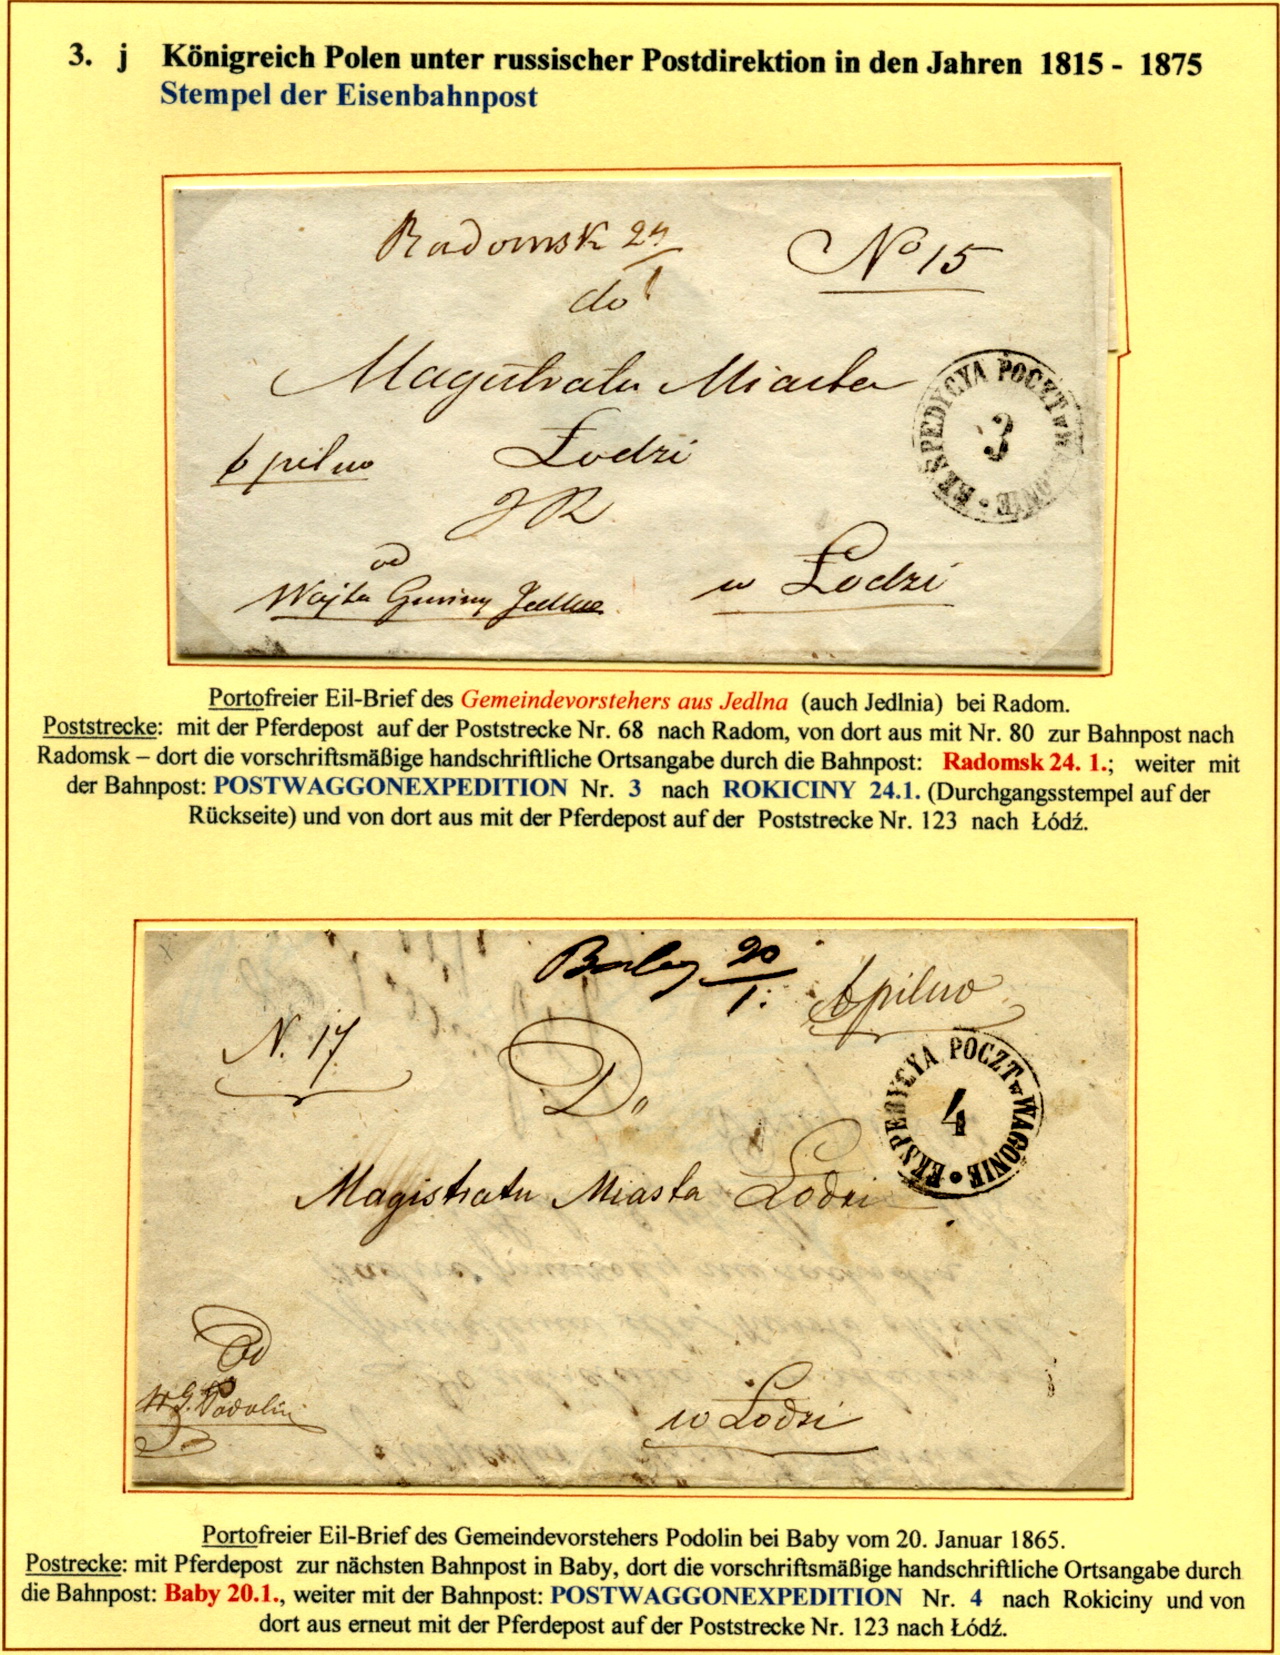 3. j Königreich Polen unter russischer Postdirektion in den Jahren 1815 - 1875
Stempel der Eisenbahnpost
Radomsk 24/1
No 15
do
Magistratu Miasta
EKSPEDYCYA POCZT w WAGONIE
3
pilno
Łodzi
od
Wójta Gminy Jedlna
w Łodzi
Portofreier Eil-Brief des Gemeindevorstehers aus Jedlna (auch Jedlnia) bei Radom.
Poststrecke: mit der Pferdepost auf der Poststrecke Nr. 68 nach Radom, von dort aus mit Nr. 80 zur Bahnpost nach
Radomsk – dort die vorschriftsmäßige handschriftliche Ortsangabe durch die Bahnpost: Radomsk 24. 1.; weiter mit
der Bahnpost: POSTWAGGONEXPEDITION Nr. 3 nach ROKICINY 24.1. (Durchgangsstempel auf der
Rückseite) und von dort aus mit der Pferdepost auf der Poststrecke Nr. 123 nach Łódź.
Baby 20/1.
pilno
N. 17
Do
EKSPEDYCYA POCZT w WAGONIE
4
Magistratu Miasta Łodzi
Od
W. G. Podolin
w Łodzi
Portofreier Eil-Brief des Gemeindevorstehers Podolin bei Baby vom 20. Januar 1865.
Postrecke: mit Pferdepost zur nächsten Bahnpost in Baby, dort die vorschriftsmäßige handschriftliche Ortsangabe durch
die Bahnpost: Baby 20.1., weiter mit der Bahnpost: POSTWAGGONEXPEDITION Nr. 4 nach Rokiciny und von
dort aus erneut mit der Pferdepost auf der Poststrecke Nr. 123 nach Łódź.